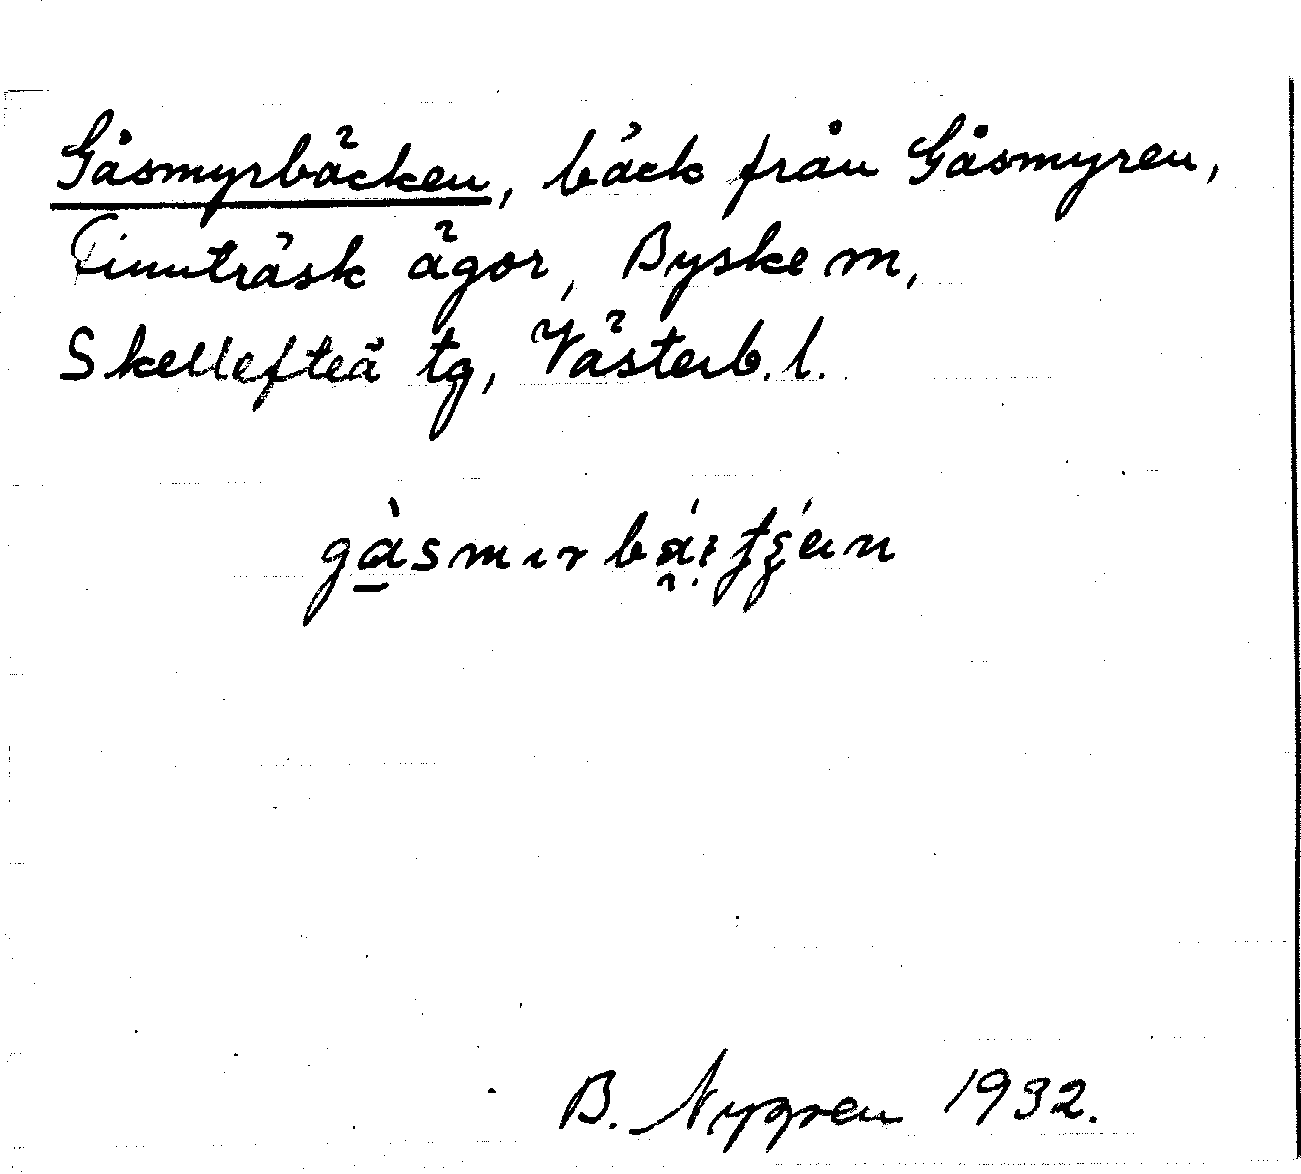 Gåsmyrbäcken, bäck från Gåsmyren,
Finnträsk ägor, Byske sn,
Skellefteå tg, Västerb. l.
B. Nygren 1932.